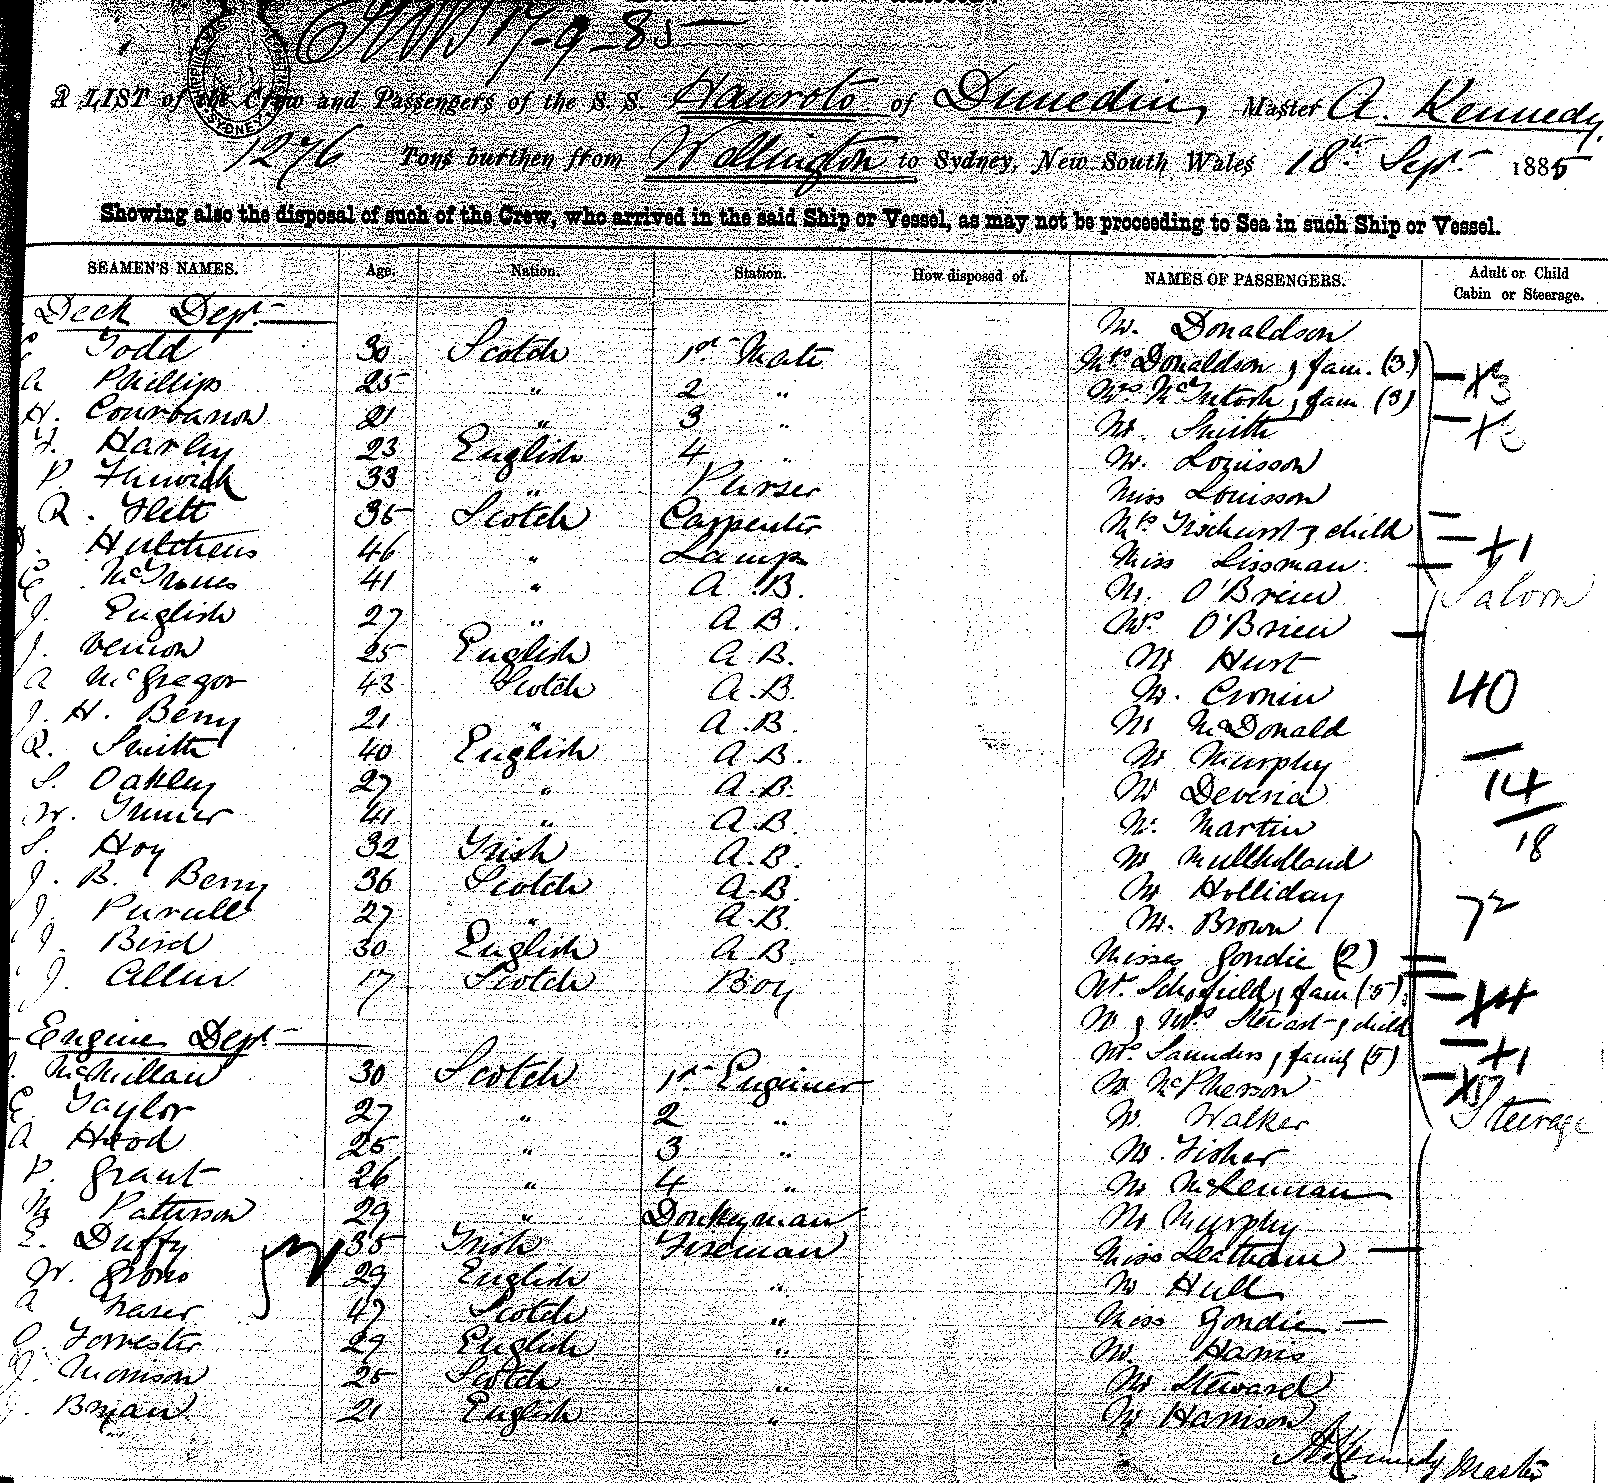 17-9-85
SYDNEY
A LIST of the Crew and Passengers of the S. S. Hauroto of Dunedin, Master A. Kennedy.
1276 Tons burthen from Wellington to Sydney, New South Wales 18th Sept 1885
Showing also the disposal of such of the Crew, who arrived in the said Ship or Vessel, as may not be proceeding to Sea in such Ship or Vessel.
SEAMEN'S NAMES. Age. Nation. Station. How disposed of. NAMES OF PASSENGERS. Adult or Child Cabin or Steerage.
Deck Dept. Mr. Donaldson
Todd 30 Scotch 1st Mate Mrs Donaldson & fam. (3) x3
A Phillips 25 " 2 " Mrs McIntosh & fam (3)
H. Courbarron 21 " 3 " Mr. Smith
Harley 23 English 4 " Mr. Louisson
P. Fenwick 33 " Purser Miss Louisson
R. Flett 35 Scotch Carpenter Mrs Ticehurst & child
Hutchens 46 " Lamps Miss Lissman +1
41 " A B. Mr. O'Brien Saloon
J. English 27 " A B. Mrs O'Brien
J. Vernon 25 English A. B. Mr Hurt
A McGregor 43 Scotch A. B. Mr. Cronin 40
J. H. Berry 21 " A. B. Mr McDonald
R. Smith 40 English A B. Mr Murphy
S. Oakley 27 " A. B. Mr Deveria 14
W. Turner 41 " A. B. Mr. Martin
S. Hoy 32 Irish A. B. Mr Mullholland 18
J. B. Berry 36 Scotch A. B Mr Holliday
J. Purcell 27 " A. B. Mr. Brown 72
J. Bird 30 English A B. Misses Gondie (2)
J. Allen 17 Scotch Boy Mr. Schofield & fam (5) x4
Engine Dept Mr & Mrs Stewart & child
McMillan 30 Scotch 1st Engineer Mrs Saunders & family (5) +1
E. Taylor 27 " 2 " Mr McPherson
A Hood 25 " 3 " Mr. Walker Steerage
P. Grant 26 " 4 " Mr. Fisher
M Patterson 29 " Donkeyman Mr McLennan
E. Duffy 35 Irish Fireman Mr Murphy
W. Grono 29 English " Miss Leatham
A Fraser 47 Scotch " Mr Hull
O. Forrester 29 English " Miss Gondie
J. Morrison 25 Scotch " Mr. Harris
J. Bryan 21 English " Mr Steward
Mr Harrison
A Kennedy Master